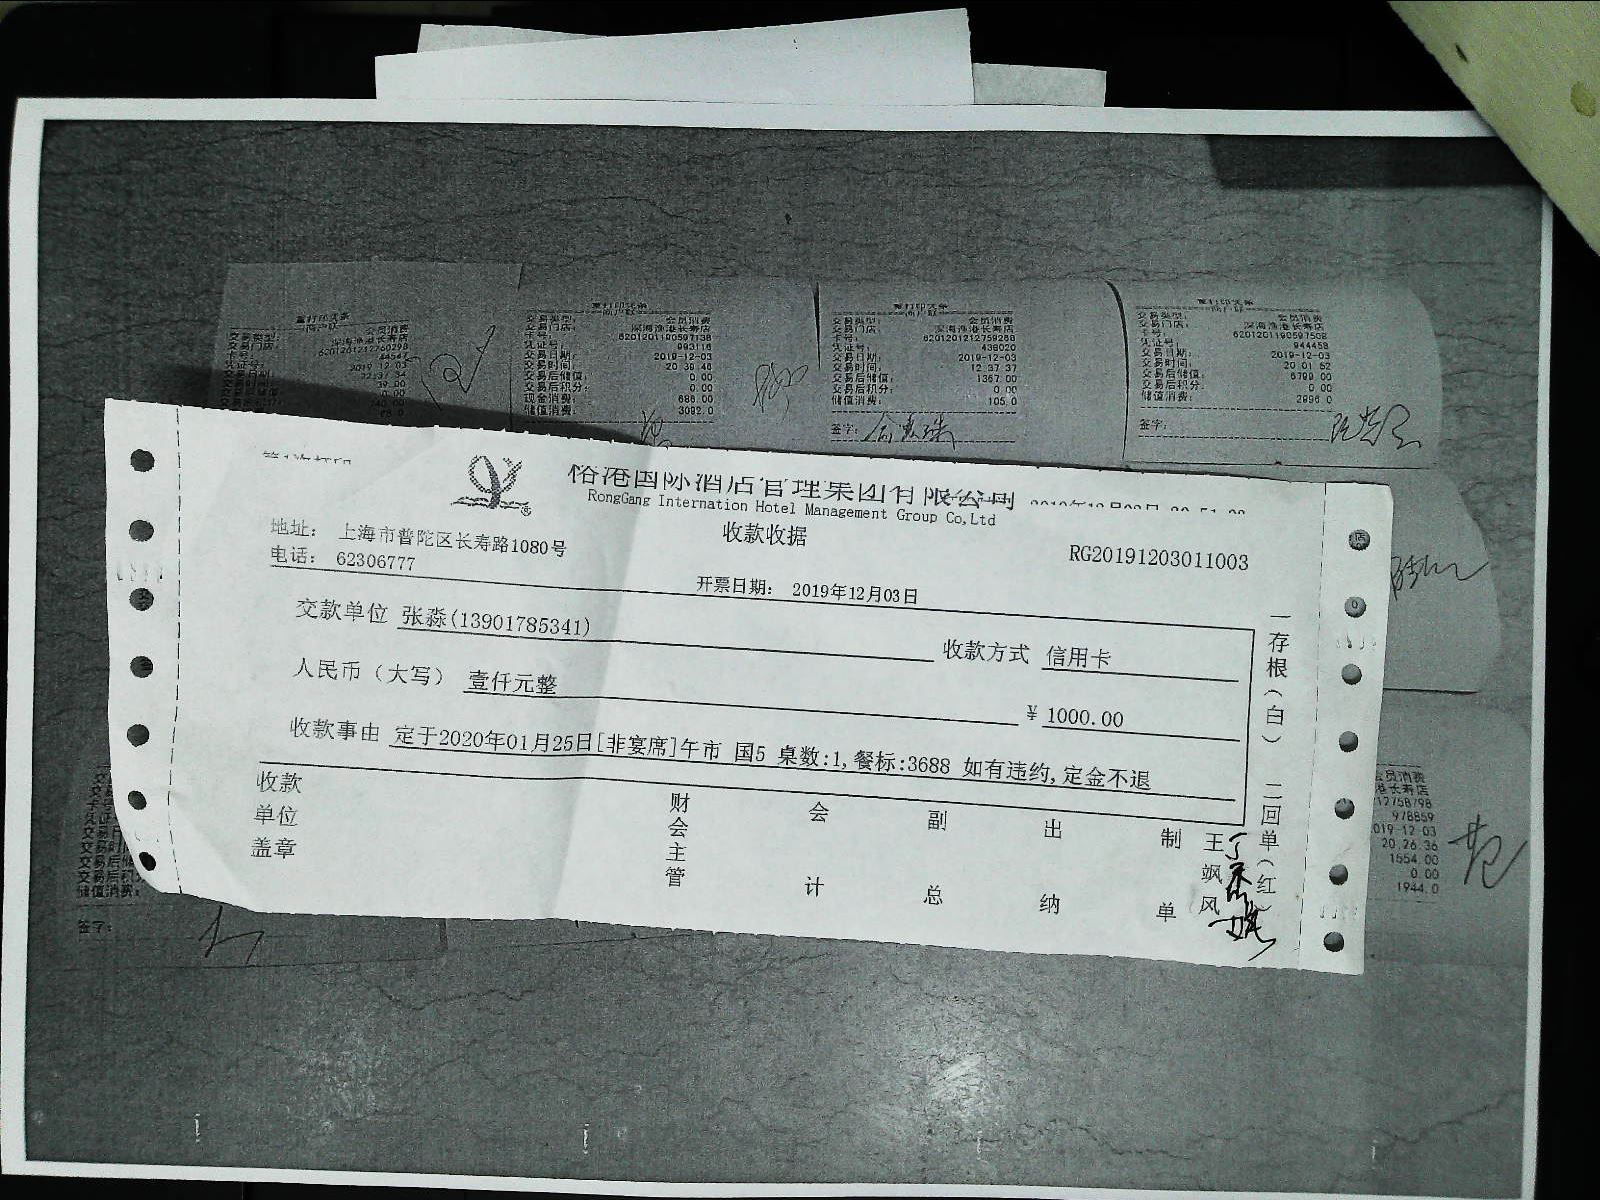 重打印头条
商户联
交易类型: 会员消费
交易门店: 深海渔港长寿店
卡号: 6201201212760298
凭证号: 44547
交易日期: 2019-12-03
39.00
0.00
重打印头条
商户联
交易类型: 会员消费
交易门店: 深海渔港长寿店
卡号: 6201201190597138
凭证号: 993116
交易日期: 2019-12-03
交易时间: 20 39 46
交易后储值: 0.00
交易后积分: 0.00
现金消费: 686.00
储值消费: 3092.0
重打印头条
商户联
交易类型: 会员消费
交易门店: 深海渔港长寿店
卡号: 6201201212759268
凭证号: 438020
交易日期: 2019-12-03
交易时间: 12 37 37
交易后储值: 1367 00
交易后积分: 0 00
储值消费: 105 0
签字:
重打印头条
商户联
交易类型: 会员消费
交易门店: 深海渔港长寿店
卡号: 6201201190597508
凭证号: 944458
交易日期: 2019-12-03
交易时间: 20 01 52
交易后储值: 6799 00
交易后积分: 0 00
储值消费: 2996 0
签字:
裕港国际酒店管理集团有限公司
RongGang International Hotel Management Group Co,Ltd
收款收据
地址: 上海市普陀区长寿路1080号
电话: 62306777
RG20191203011003
开票日期: 2019年12月03日
交款单位 张淼(13901785341)
收款方式 信用卡
人民币(大写) 壹仟元整
¥ 1000.00
收款事由 定于2020年01月25日[非宴席]午市 国5 桌数:1,餐标:3688 如有违约,定金不退
收款单位盖章
财会主管
会计
副总
出纳
制单
王飒风
一存根(白) 二回单(红)
会员消费
港长寿店
12758798
978859
019-12-03
20.26.36
1554.00
0.00
1944.0
储值消费:
签字: